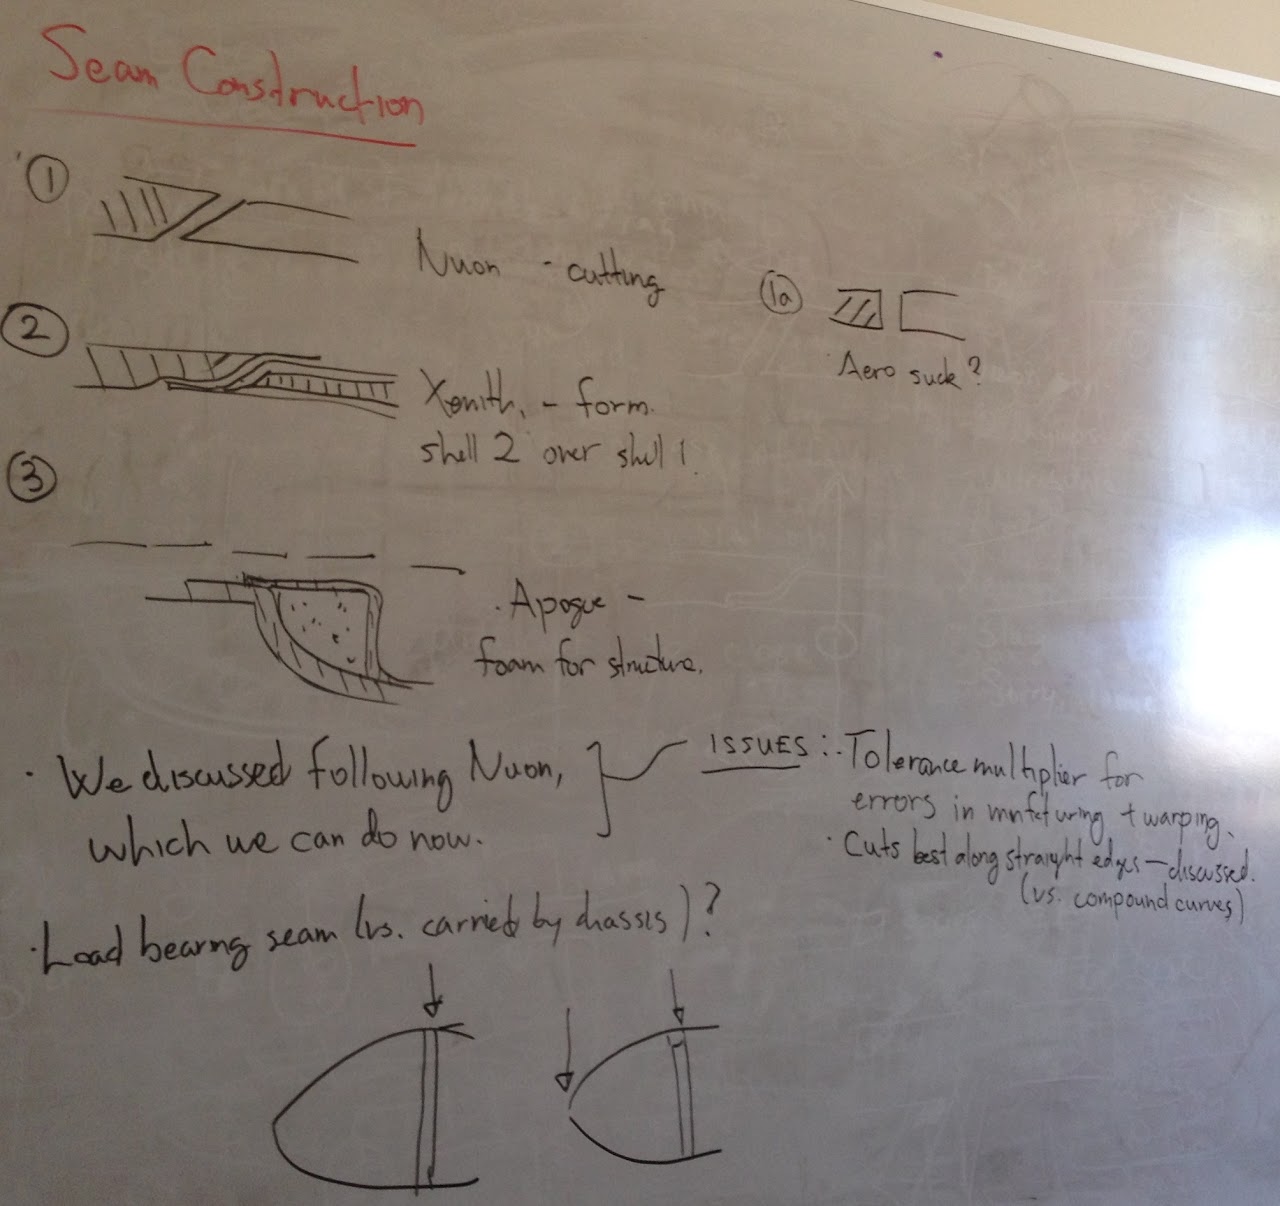 Seam Construction
①
Nuon - cutting
1a
Aero suck?
②
Xenith, - form.
shell 2 over shell 1.
③
Apogue -
foam for structure.
· We discussed following Nuon,
which we can do now.
ISSUES : · Tolerance multiplier for
errors in mnfcturing + warping.
· Cuts best along straight edges - discussed.
(vs. compound curves)
· Load bearing seam (vs. carried by chassis)?